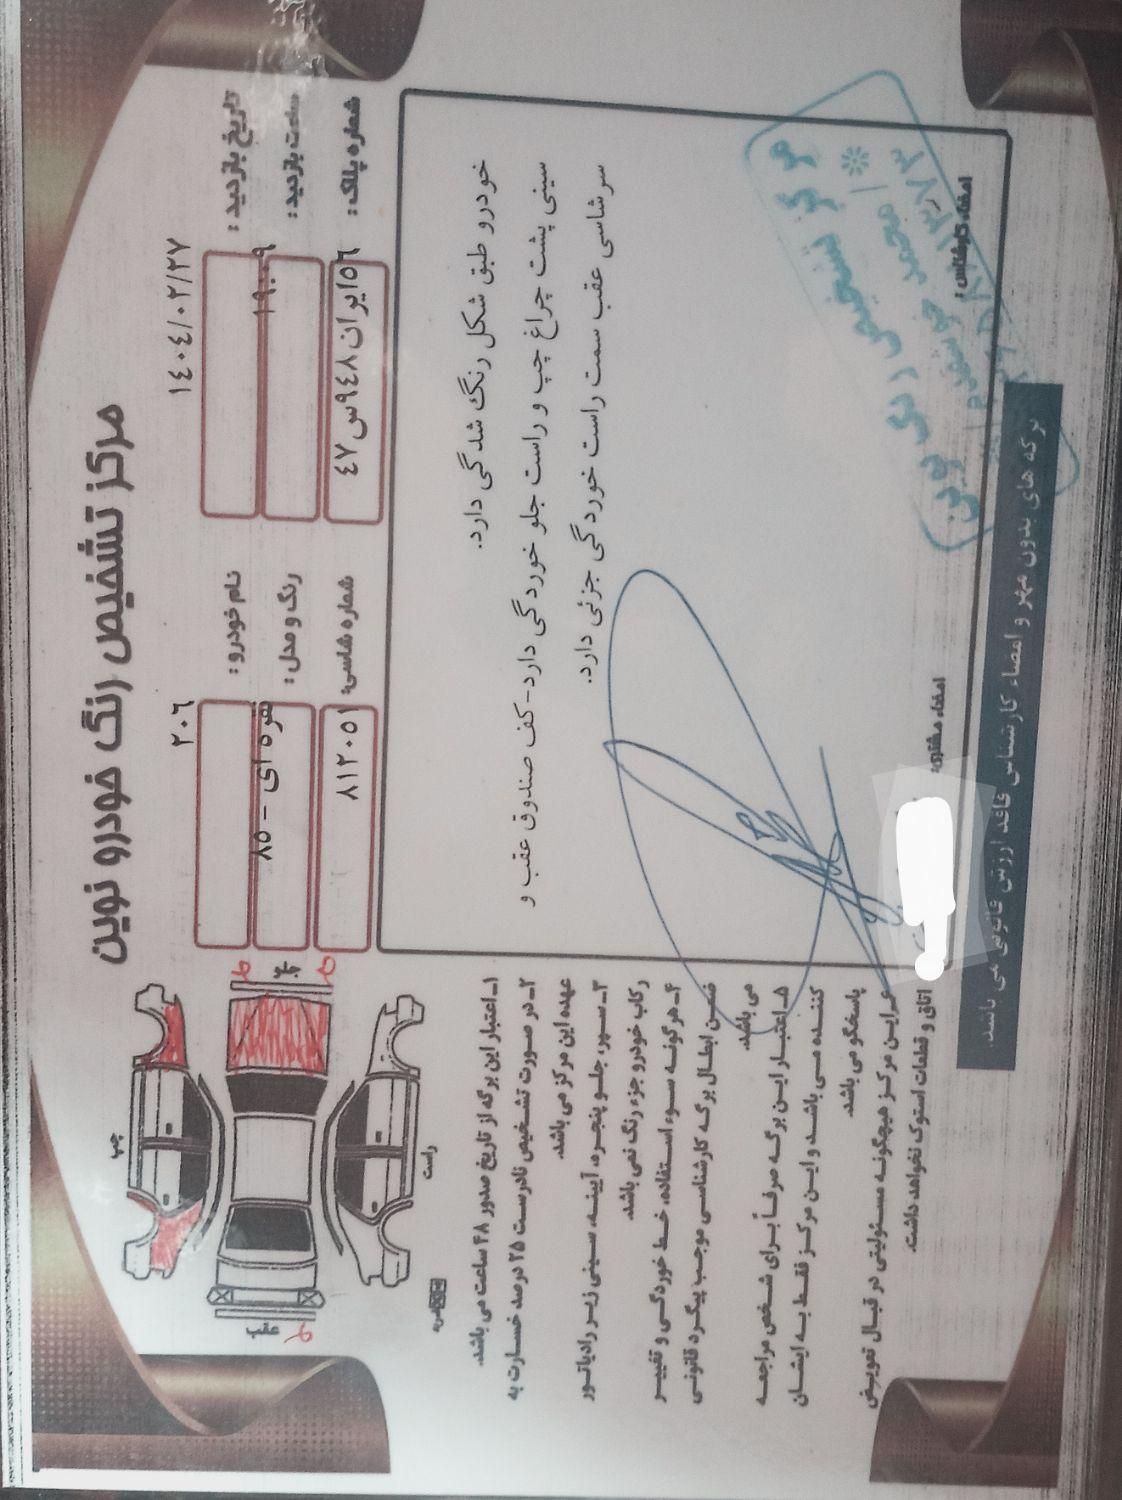 مرکز تشخیص رنگ خودرو نوین
نام خودرو : ۲۰۶
تاریخ بازدید : ۱۴۰۴/۰۲/۲۷
رنگ و مدل : نقره ای - ۸۵
ساعت بازدید : ۱۹:۰۰
شماره شاسی: ۸۱۲۰۵۱
شماره پلاک : ۵۶ایران۹۴۸س۴۷
خودرو طبق شکل رنگ شدگی دارد.
سینی پشت چراغ چپ و راست جلو خوردگی دارد-کف صندوق عقب و
سرشاسی عقب سمت راست خوردگی جزئی دارد.
چپ
راست
جلو
عقب
۱-اعتبار این برگه از تاریخ صدور ۴۸ ساعت می باشد.
۲-در صورت تشخیص نادرست ۲۵ درصد خسارت به
عهده این مرکز می باشد.
۳-سپر، جلو پنجره، آیینه، سینی زیر رادیاتور
رکاب خودرو جزء رنگ نمی باشد.
۴-هرگونه سوء استفاده، خط خوردگی و تغییر
ضمن ابطال برگه کارشناسی موجب پیگرد قانونی
می باشد.
۵-اعتبار این برگه صرفاً برای شخص مراجعه
کننده می باشد و این مرکز فقط به ایشان
پاسخگو می باشد.
۶-این مرکز هیچگونه مسئولیتی در قبال تعویض
اتاق و قطعات استوک نخواهد داشت.
امضاء مشتری:
امضاء کارشناس :
مرکز تشخیص رنگ
نوین
محمد
برگه های بدون مهر و امضاء کارشناس فاقد ارزش قانونی می باشد.